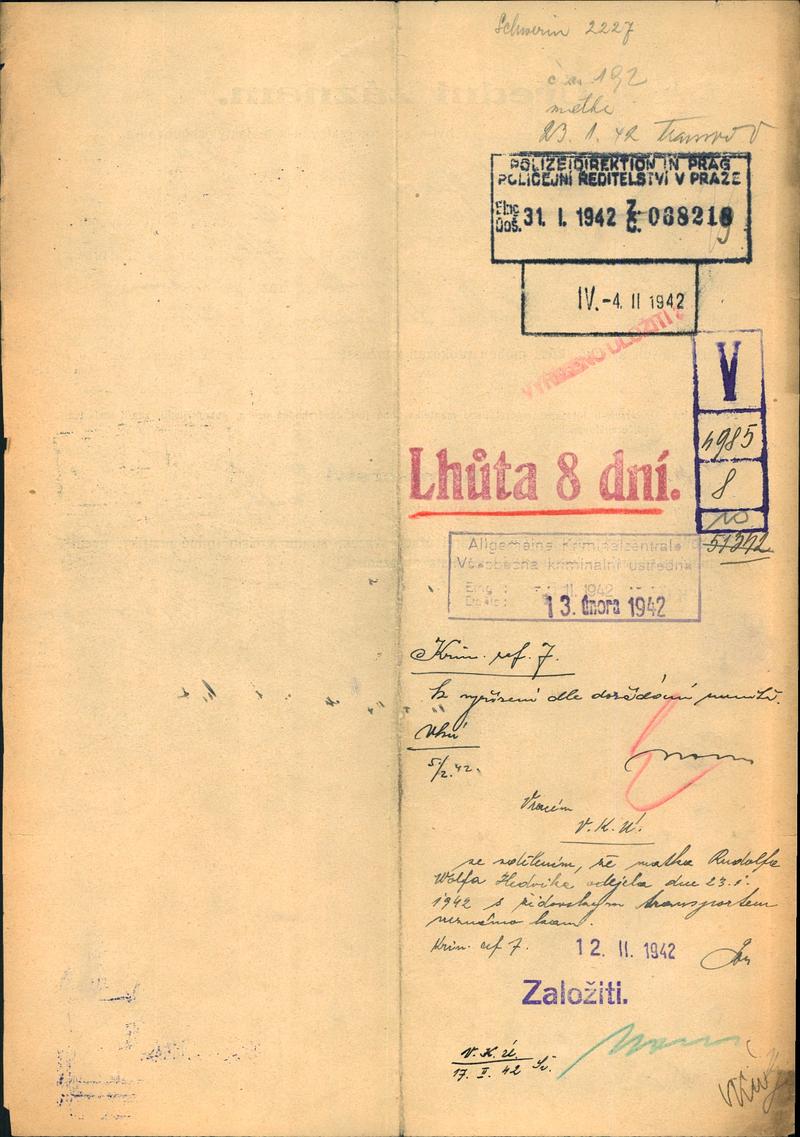 Schwerin 2227
192
matka
23. 1. 42 transp
POLIZEIDIREKTION IN PRAG
POLICEJNÍ ŘEDITELSTVÍ V PRAZE
Eing. Doš. 31. I. 1942 Z. Č. 068218
IV. -4. II 1942
VYŘÍZENO ULOŽITI!
V
4985
8
10
51392
Lhůta 8 dní.
Allgemeine Kriminalzentrale
Všeobecná kriminální ústředna
Eing.: II. 1942
Došlo: 13. února 1942
Krim. ref. 7.
k vyřízení dle dožádání
Vkú
5/2. 42.
Vracím
V. K. Ú.
se sdělením, že matka Rudolfa
Wolfa Hedvika odejela dne 23. 1.
1942 s židovským transportem
neznámo kam.
Krim. ref 7. 12. II. 1942
Založiti.
V. K. Ú.
17. II. 42